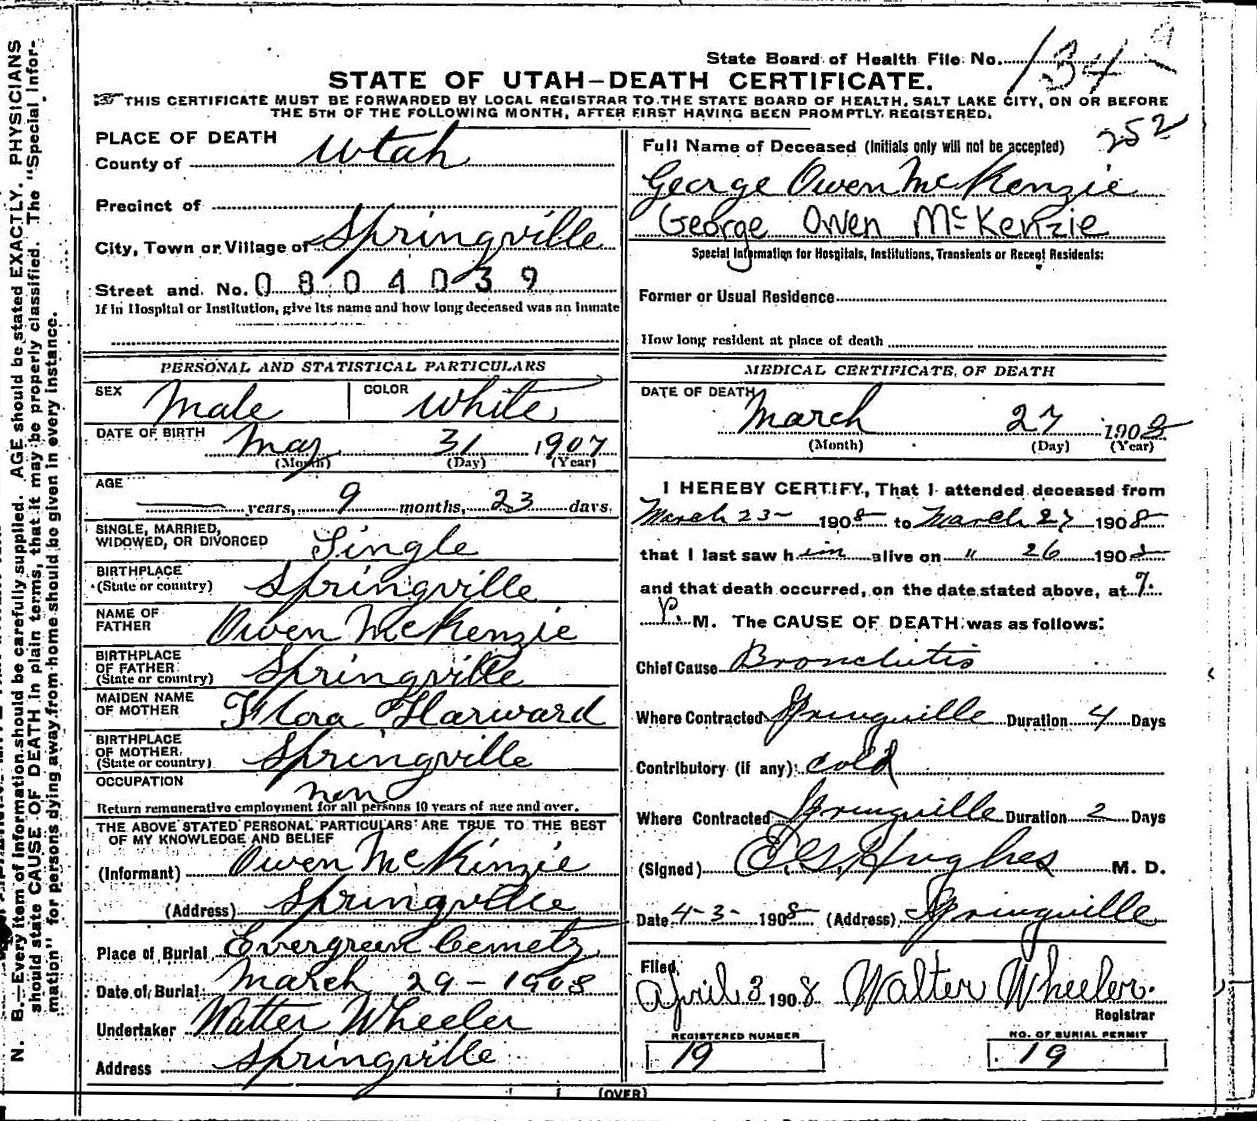 State Board of Health File No. 134
STATE OF UTAH—DEATH CERTIFICATE.
THIS CERTIFICATE MUST BE FORWARDED BY LOCAL REGISTRAR TO THE STATE BOARD OF HEALTH, SALT LAKE CITY, ON OR BEFORE
THE 5TH OF THE FOLLOWING MONTH, AFTER FIRST HAVING BEEN PROMPTLY REGISTERED.
252
PLACE OF DEATH
County of Utah
Precinct of
City, Town or Village of Springville
Street and No. 0804039
If in Hospital or Institution, give its name and how long deceased was an inmate
PERSONAL AND STATISTICAL PARTICULARS
SEX Male COLOR White
DATE OF BIRTH May 31 1907
(Month) (Day) (Year)
AGE
years, 9 months, 23 days.
SINGLE, MARRIED,
WIDOWED, OR DIVORCED Single
BIRTHPLACE
(State or country) Springville
NAME OF
FATHER Owen McKenzie
BIRTHPLACE
OF FATHER
(State or country) Springville
MAIDEN NAME
OF MOTHER Flora Harward
BIRTHPLACE
OF MOTHER
(State or country) Springville
OCCUPATION non
Return remunerative employment for all persons 10 years of age and over.
THE ABOVE STATED PERSONAL PARTICULARS ARE TRUE TO THE BEST
OF MY KNOWLEDGE AND BELIEF
(Informant) Owen McKinzie
(Address) Springville
Place of Burial Evergreen
Date of Burial March 29-1908
Undertaker Walter Wheeler
Address Springville
Full Name of Deceased (Initials only will not be accepted)
George Owen McKenzie
George Owen McKenzie
Special Information for Hospitals, Institutions, Transients or Recent Residents:
Former or Usual Residence
How long resident at place of death
MEDICAL CERTIFICATE OF DEATH
DATE OF DEATH
March 27 1908
(Month) (Day) (Year)
I HEREBY CERTIFY, That I attended deceased from
March 23- 1908 to March 27 1908
that I last saw him alive on " 26 1908
and that death occurred, on the date stated above, at 9
P. M. The CAUSE OF DEATH was as follows:
Chief Cause Bronchitis
Where Contracted Springville Duration 4 Days
Contributory (if any) Cold
Where Contracted Springville Duration 2 Days
(Signed) Hughes M. D.
Date 4-3- 1908 (Address) Springville
Filed
April 3 1908 Walter Wheeler
Registrar
REGISTERED NUMBER NO. OF BURIAL PERMIT
19 19
(OVER)
N. B.—Every item of information should be carefully supplied. AGE should be stated EXACTLY. PHYSICIANS
should state CAUSE OF DEATH in plain terms, that it may be properly classified. The "Special Infor-
mation" for persons dying away from home should be given in every instance.